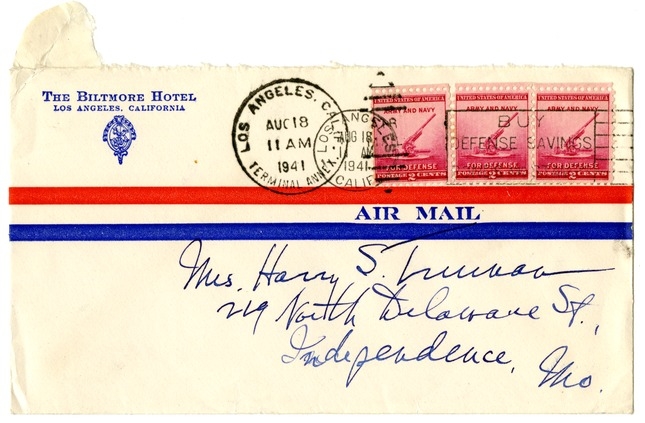 THE BILTMORE HOTEL
LOS ANGELES, CALIFORNIA
LOS ANGELES, CALIF.
AUG 18
11 AM
1941
TERMINAL ANNEX
LOS ANGELES
AUG 18
AM
1941
CALIF
BUY
DEFENSE SAVINGS
UNITED STATES OF AMERICA
ARMY AND NAVY
FOR DEFENSE
POSTAGE 2 CENTS
UNITED STATES OF AMERICA
ARMY AND NAVY
FOR DEFENSE
POSTAGE 2 CENTS
UNITED STATES OF AMERICA
ARMY AND NAVY
FOR DEFENSE
POSTAGE 2 CENTS
AIR MAIL
Mrs. Harry S. Truman
219 North Delaware St.,
Independence,
Mo.